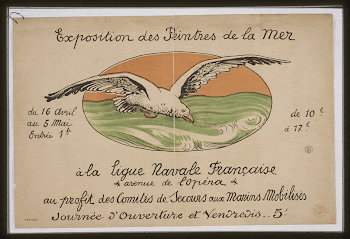 Exposition des Peintres de la Mer
du 16 Avril
au 5 Mai
Entrée 1f
de 10h
à 17h
à la Ligue Navale Française
4 avenue de l'opéra 4
au profit des Comités de Secours aux Marins Mobilisés
Journée d'Ouverture et Vendredis.. 5f